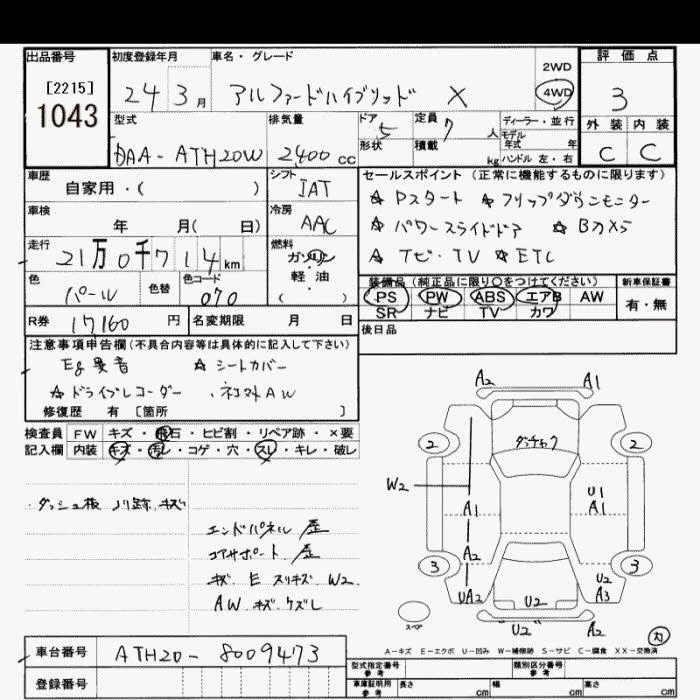 出品番号 初度登録年月 車名・グレード 2WD 評価点
[2215] 24 3月 アルファードハイブリッド X 4WD 3
1043
型式 排気量 ドア 5 定員 7人 ディーラー・並行 外装 内装
モデル年式 年
DAA-ATH20W 2400cc 形状 積載 kg ハンドル 左・右 C C
車歴 シフト セールスポイント(正常に機能するものに限ります)
自家用・( ) IAT ☆ Pスタート ☆ フリップダウンモニター
車検 冷房 ☆ パワースライドドア ☆ Bカメラ
年 月(日) AAC
走行 燃料 ☆ ナビ・TV ☆ ETC
21万0千714km ガソリン
色 色替 色コード 軽・油 装備品(純正品に限り○をつけてください) 新車保証書
パール 070 ( ) PS PW ABS エアB AW 有・無
SR ナビ TV カワ
R券 17160円 名変期限 月 日 後日品
注意事項申告欄(不具合内容等は具体的に記入して下さい)
Eg異音 ☆ シートカバー
☆ ドライブレコーダー
修復歴 有 [箇所 ]
検査員 FW キズ・飛石・ヒビ割・リペア跡・×要
記入欄 内装 キズ・汚レ・コゲ・穴・スレ・キレ・破レ
・ダッシュ板 ノリ跡 キズ
エンドパネル 歪
コアサポート 歪
キズ E スリキズ W2
AW キズ ケズレ
A2 A1
2 2
W2 U1
A1 A1
A2
3 3
UA2 U2 U2
A3
"U2" A2
スペア
A-キズ E-エクボ U-凹み W-補修跡 S-サビ C-腐食 XX-交換済
車台番号 ATH20-8009473
登録番号
型式指定番号 参考 類別区分番号 参考
車庫証明用 参考 長さ cm 幅 cm 高さ cm